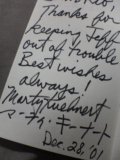 Thanks for
keeping Jeff
out of trouble
Best wishes
always!
Marty Kuehnert
マーティ・キーナート
Dec. 28, '01